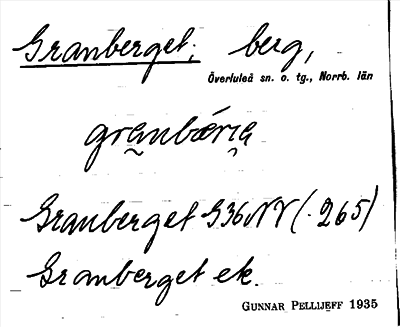 Granberget; berg,
Överluleå sn. o. tg., Norrb. län
granbærıa
Granberget G36NV (· 265)
Granberget ek.
GUNNAR PELLIJEFF 1935